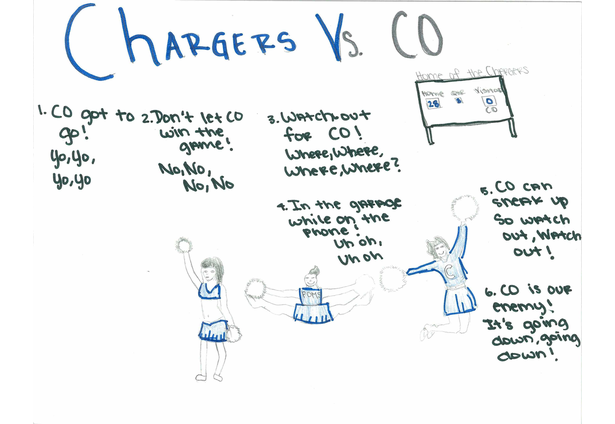 Chargers Vs. CO
Home of the Chargers
Home
Visitors
28
0
CO
1. CO got to
go!
Yo, Yo,
Yo, Yo
2. Don't let CO
win the
game!
No, No,
No, No
3. Watch out
for CO!
Where, Where,
Where, Where?
4. In the garage
while on the
phone!
Uh oh,
Uh oh
5. CO can
sneak up
So watch
out, Watch
out!
6. CO is our
enemy!
It's going
down, going
down!
C